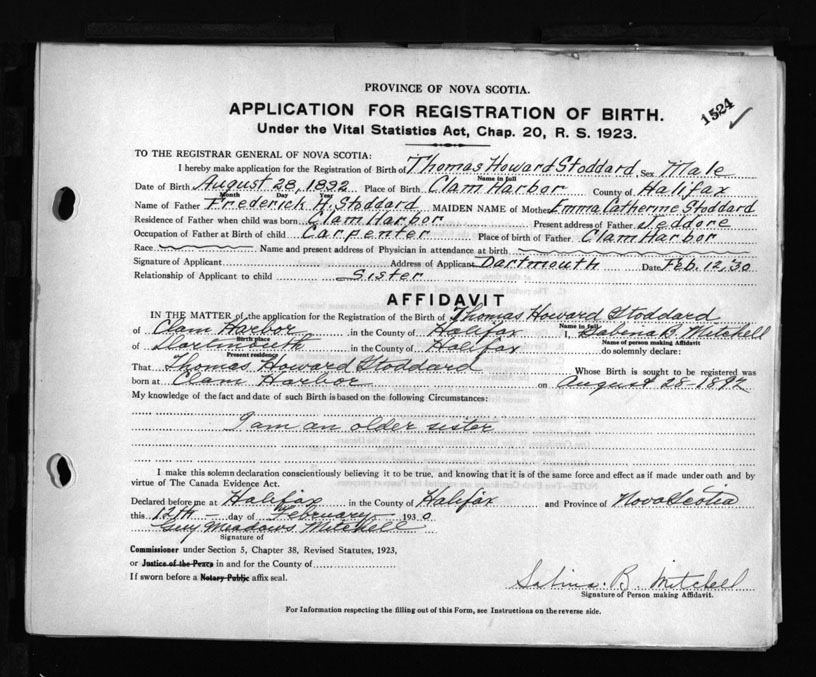 PROVINCE OF NOVA SCOTIA.
1524 ✓
APPLICATION FOR REGISTRATION OF BIRTH.
Under the Vital Statistics Act, Chap. 20, R. S. 1923.
TO THE REGISTRAR GENERAL OF NOVA SCOTIA:
I hereby make application for the Registration of Birth of Thomas Howard Stoddard Sex Male
Name in full
Date of Birth August 28, 1892 Place of Birth Clam Harbor County of Halifax
Month Day Year
Name of Father Frederick H. Stoddard MAIDEN NAME of Mother Emma Catherine Stoddard
Residence of Father when child was born Clam Harbor Present address of Father Jeddore
Occupation of Father at Birth of child Carpenter Place of birth of Father Clam Harbor
Race Name and present address of Physician in attendance at birth
Signature of Applicant Address of Applicant Dartmouth Date Feb. 12, '30
Relationship of Applicant to child Sister
AFFIDAVIT
IN THE MATTER of the application for the Registration of the Birth of Thomas Howard Stoddard
Name in full
of Clam Harbor in the County of Halifax I, Sabina B. Mitchell
Birth place Name of person making Affidavit
of Dartmouth in the County of Halifax do solemnly declare:
Present residence
That Thomas Howard Stoddard Whose Birth is sought to be registered was
born at Clam Harbor on August 28-1892
My knowledge of the fact and date of such Birth is based on the following Circumstances:
I am an older sister
I make this solemn declaration conscientiously believing it to be true, and knowing that it is of the same force and effect as if made under oath and by
virtue of The Canada Evidence Act.
Declared before me at Halifax in the County of Halifax and Province of Nova Scotia
this 12th day of February 1930
Guy Meadows Mitchell
Signature of
Commissioner under Section 5, Chapter 38, Revised Statutes, 1923,
or Justice of the Peace in and for the County of
If sworn before a Notary Public affix seal.
Sabina B. Mitchell
Signature of Person making Affidavit.
For Information respecting the filling out of this Form, see Instructions on the reverse side.